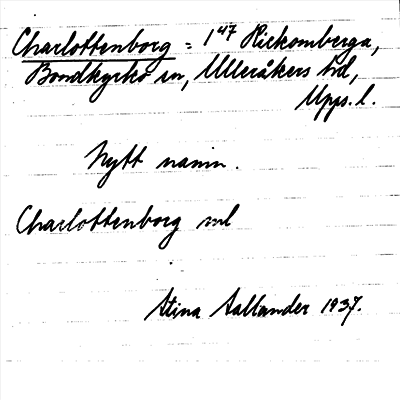 Charlottenborg = 1⁴⁷ Rickomberga,
Bondkyrko sn, Ulleråkers hd,
Upps. l.
Nytt namn.
Charlottenborg
Stina 1937.